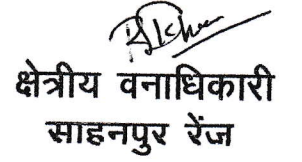 क्षेत्रीय वनाधिकारी
साहनपुर रेंज